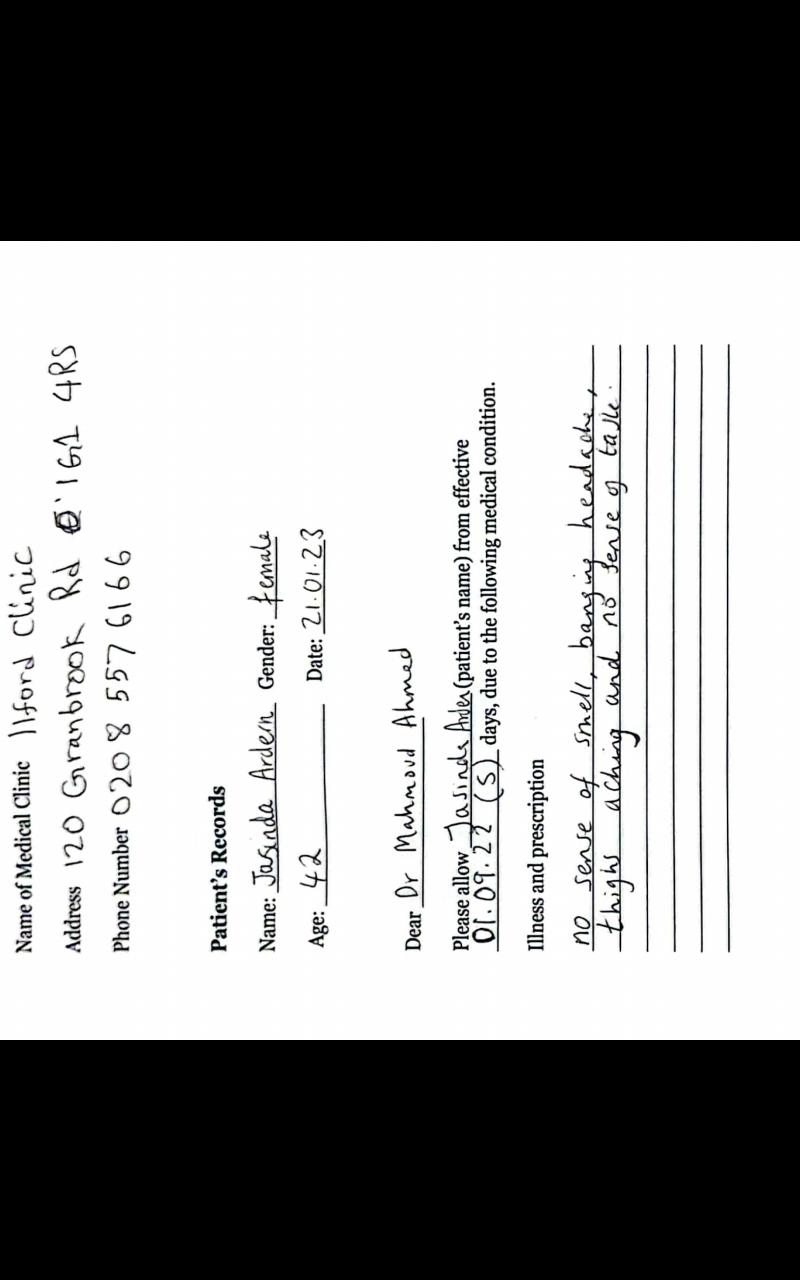 Name of Medical Clinic Ilford Clinic
Address 120 Granbrook Rd IG1 4RS
Phone Number 0208 557 6166
Patient's Records
Name: Jasinda Ardern Gender: female
Age: 42 Date: 21.01.23
Dear Dr Mahmoud Ahmed
Please allow Jasinda (patient's name) from effective
01.09.22 (5) days, due to the following medical condition.
Illness and prescription
no sense of smell, banging headache,
thighs aching and no sense of taste.